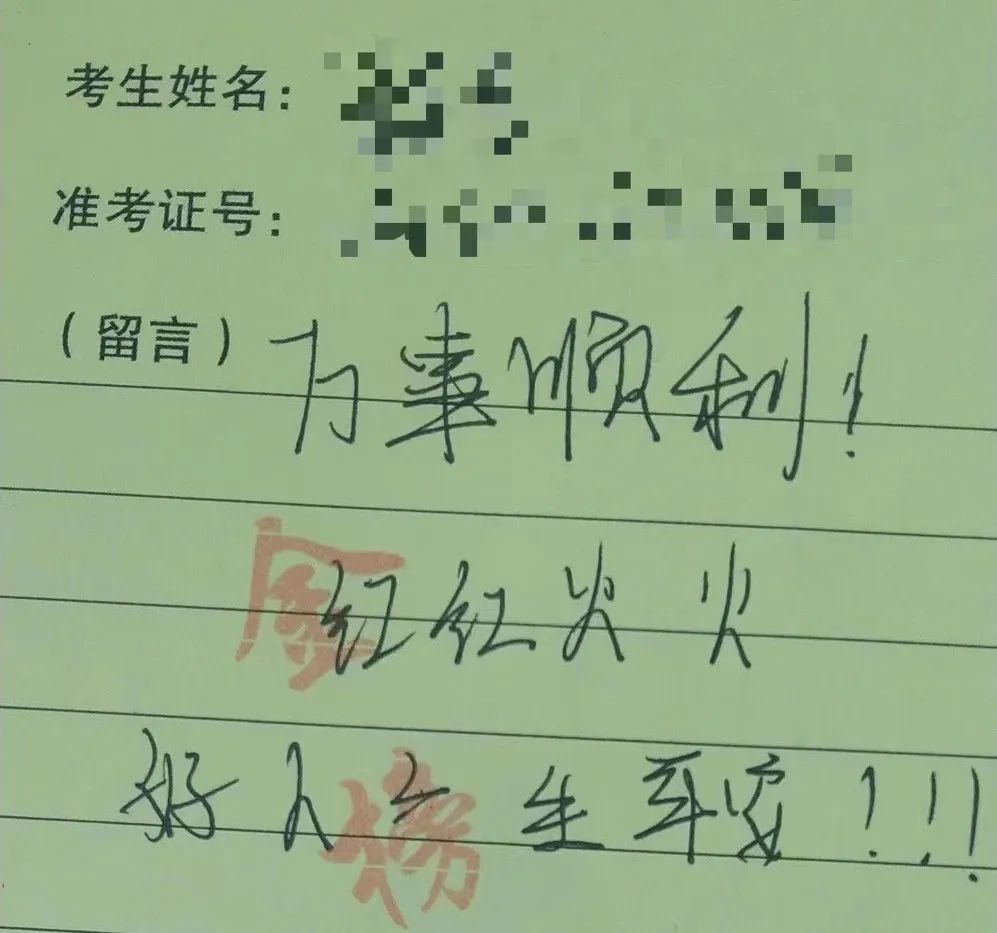 考生姓名:
准考证号:
(留言) 万事顺利!
红红火火
好人一生平安!!!
榜